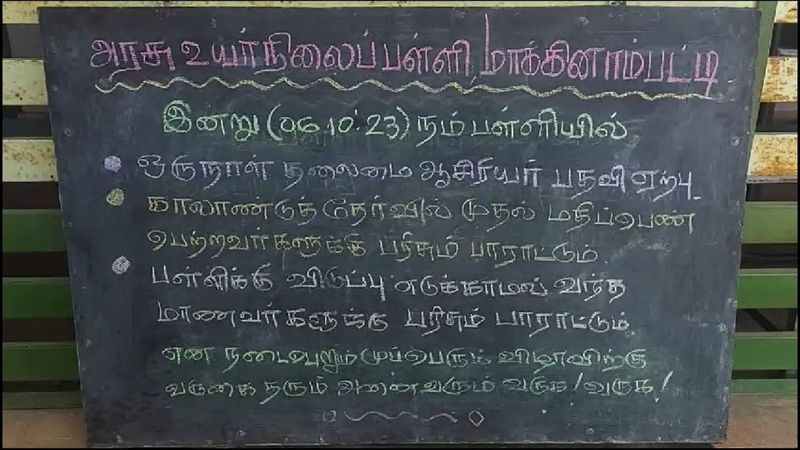 அரசு உயர்நிலைப்பள்ளி, மாக்கினாம்பட்டி
இன்று (06.10.23) நம் பள்ளியில்
ஒருநாள் தலைமை ஆசிரியர் பதவி ஏற்பு.
காலாண்டுத் தேர்வில் முதல் மதிப்பெண்
பெற்றவர்களுக்கு பரிசும் பாராட்டும்.
பள்ளிக்கு விடுப்பு எடுக்காமல் வந்த
மாணவர்களுக்கு பரிசும் பாராட்டும்.
என நடைபெறும் முப்பெரும் விழாவிற்கு
வருகை தரும் அனைவரும் வருக! வருக!